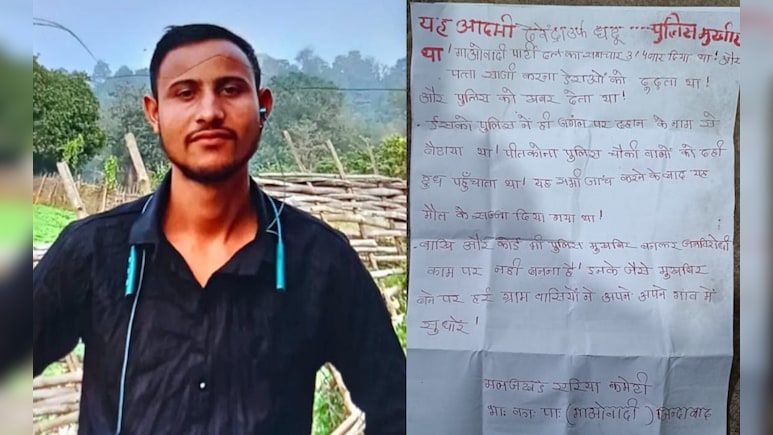 यह आदमी देवेंद्र उर्फ धदू .... पुलिस मुखबीर
था! माओवादी पार्टी दल का समाचार 3/4 बार दिया था! और
पत्ता सागी करना डेराओं को ढूढता था!
और पुलिस को खबर देता था!
पुलिस ने ही जगंन पर दहान के नाम से
बैहाया था! पीतकोना पुलिस चौकी वालों को दही
दुध पहुँचाता था! यह सभी जांच करने के बाद यह
मौत के सज्जा दिया गया था!
और कोई भी पुलिस मुखबिर बनकर जनविरोधी
काम पर नही बनना है! इनके जैसे मुखबिर
बने पर हर ग्राम वासियों ने अपने अपने गांव में
सुधारें!
मलाजखंड एरिया कमेटी
भा: क: पा: (माओवादी) जिन्दाबाद